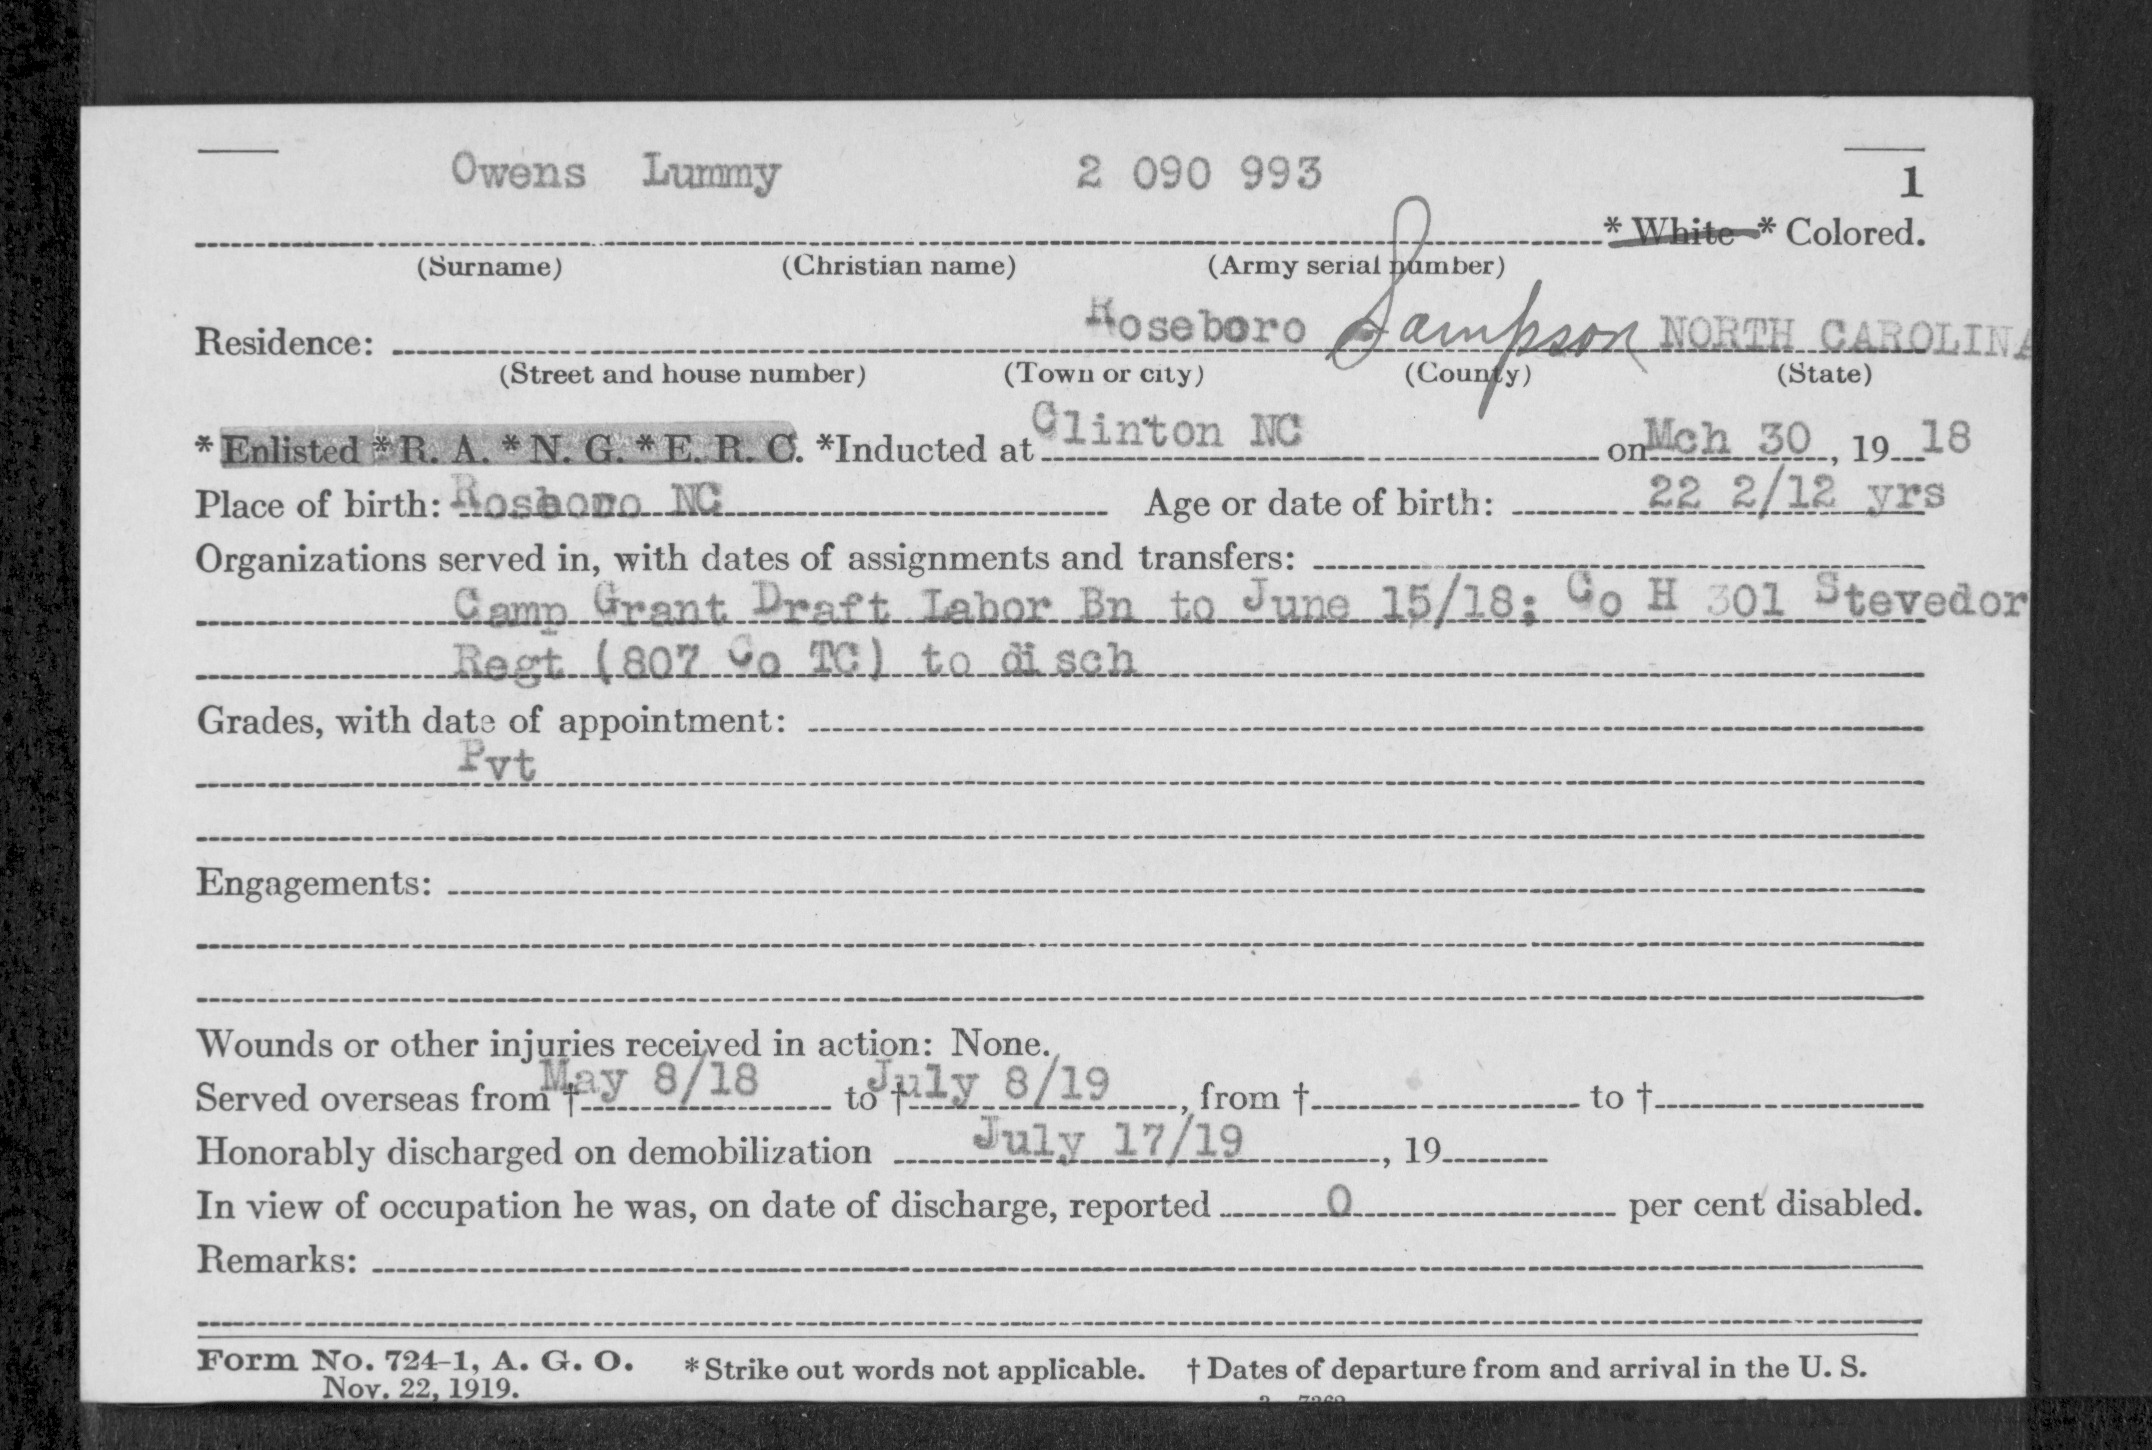 Owens Lummy 2 090 993 1
* White * Colored.
(Surname) (Christian name) (Army serial number)
Residence: Roseboro Sampson NORTH CAROLINA
(Street and house number) (Town or city) (County) (State)
* Enlisted * R. A. * N. G. * E. R. C. *Inducted at Clinton NC on Mch 30, 19 18
Place of birth: Rosboro NC Age or date of birth: 22 2/12 yrs
Organizations served in, with dates of assignments and transfers:
Camp Grant Draft Labor Bn to June 15/18; Co H 301 Stevedor
Regt (807 Co TC) to disch
Grades, with date of appointment:
Pvt
Engagements:
Wounds or other injuries received in action: None.
Served overseas from † May 8/18 to † July 8/19, from † to †
Honorably discharged on demobilization July 17/19, 19
In view of occupation he was, on date of discharge, reported 0 per cent disabled.
Remarks:
Form No. 724-1, A. G. O. * Strike out words not applicable. † Dates of departure from and arrival in the U. S.
Nov. 22, 1919.